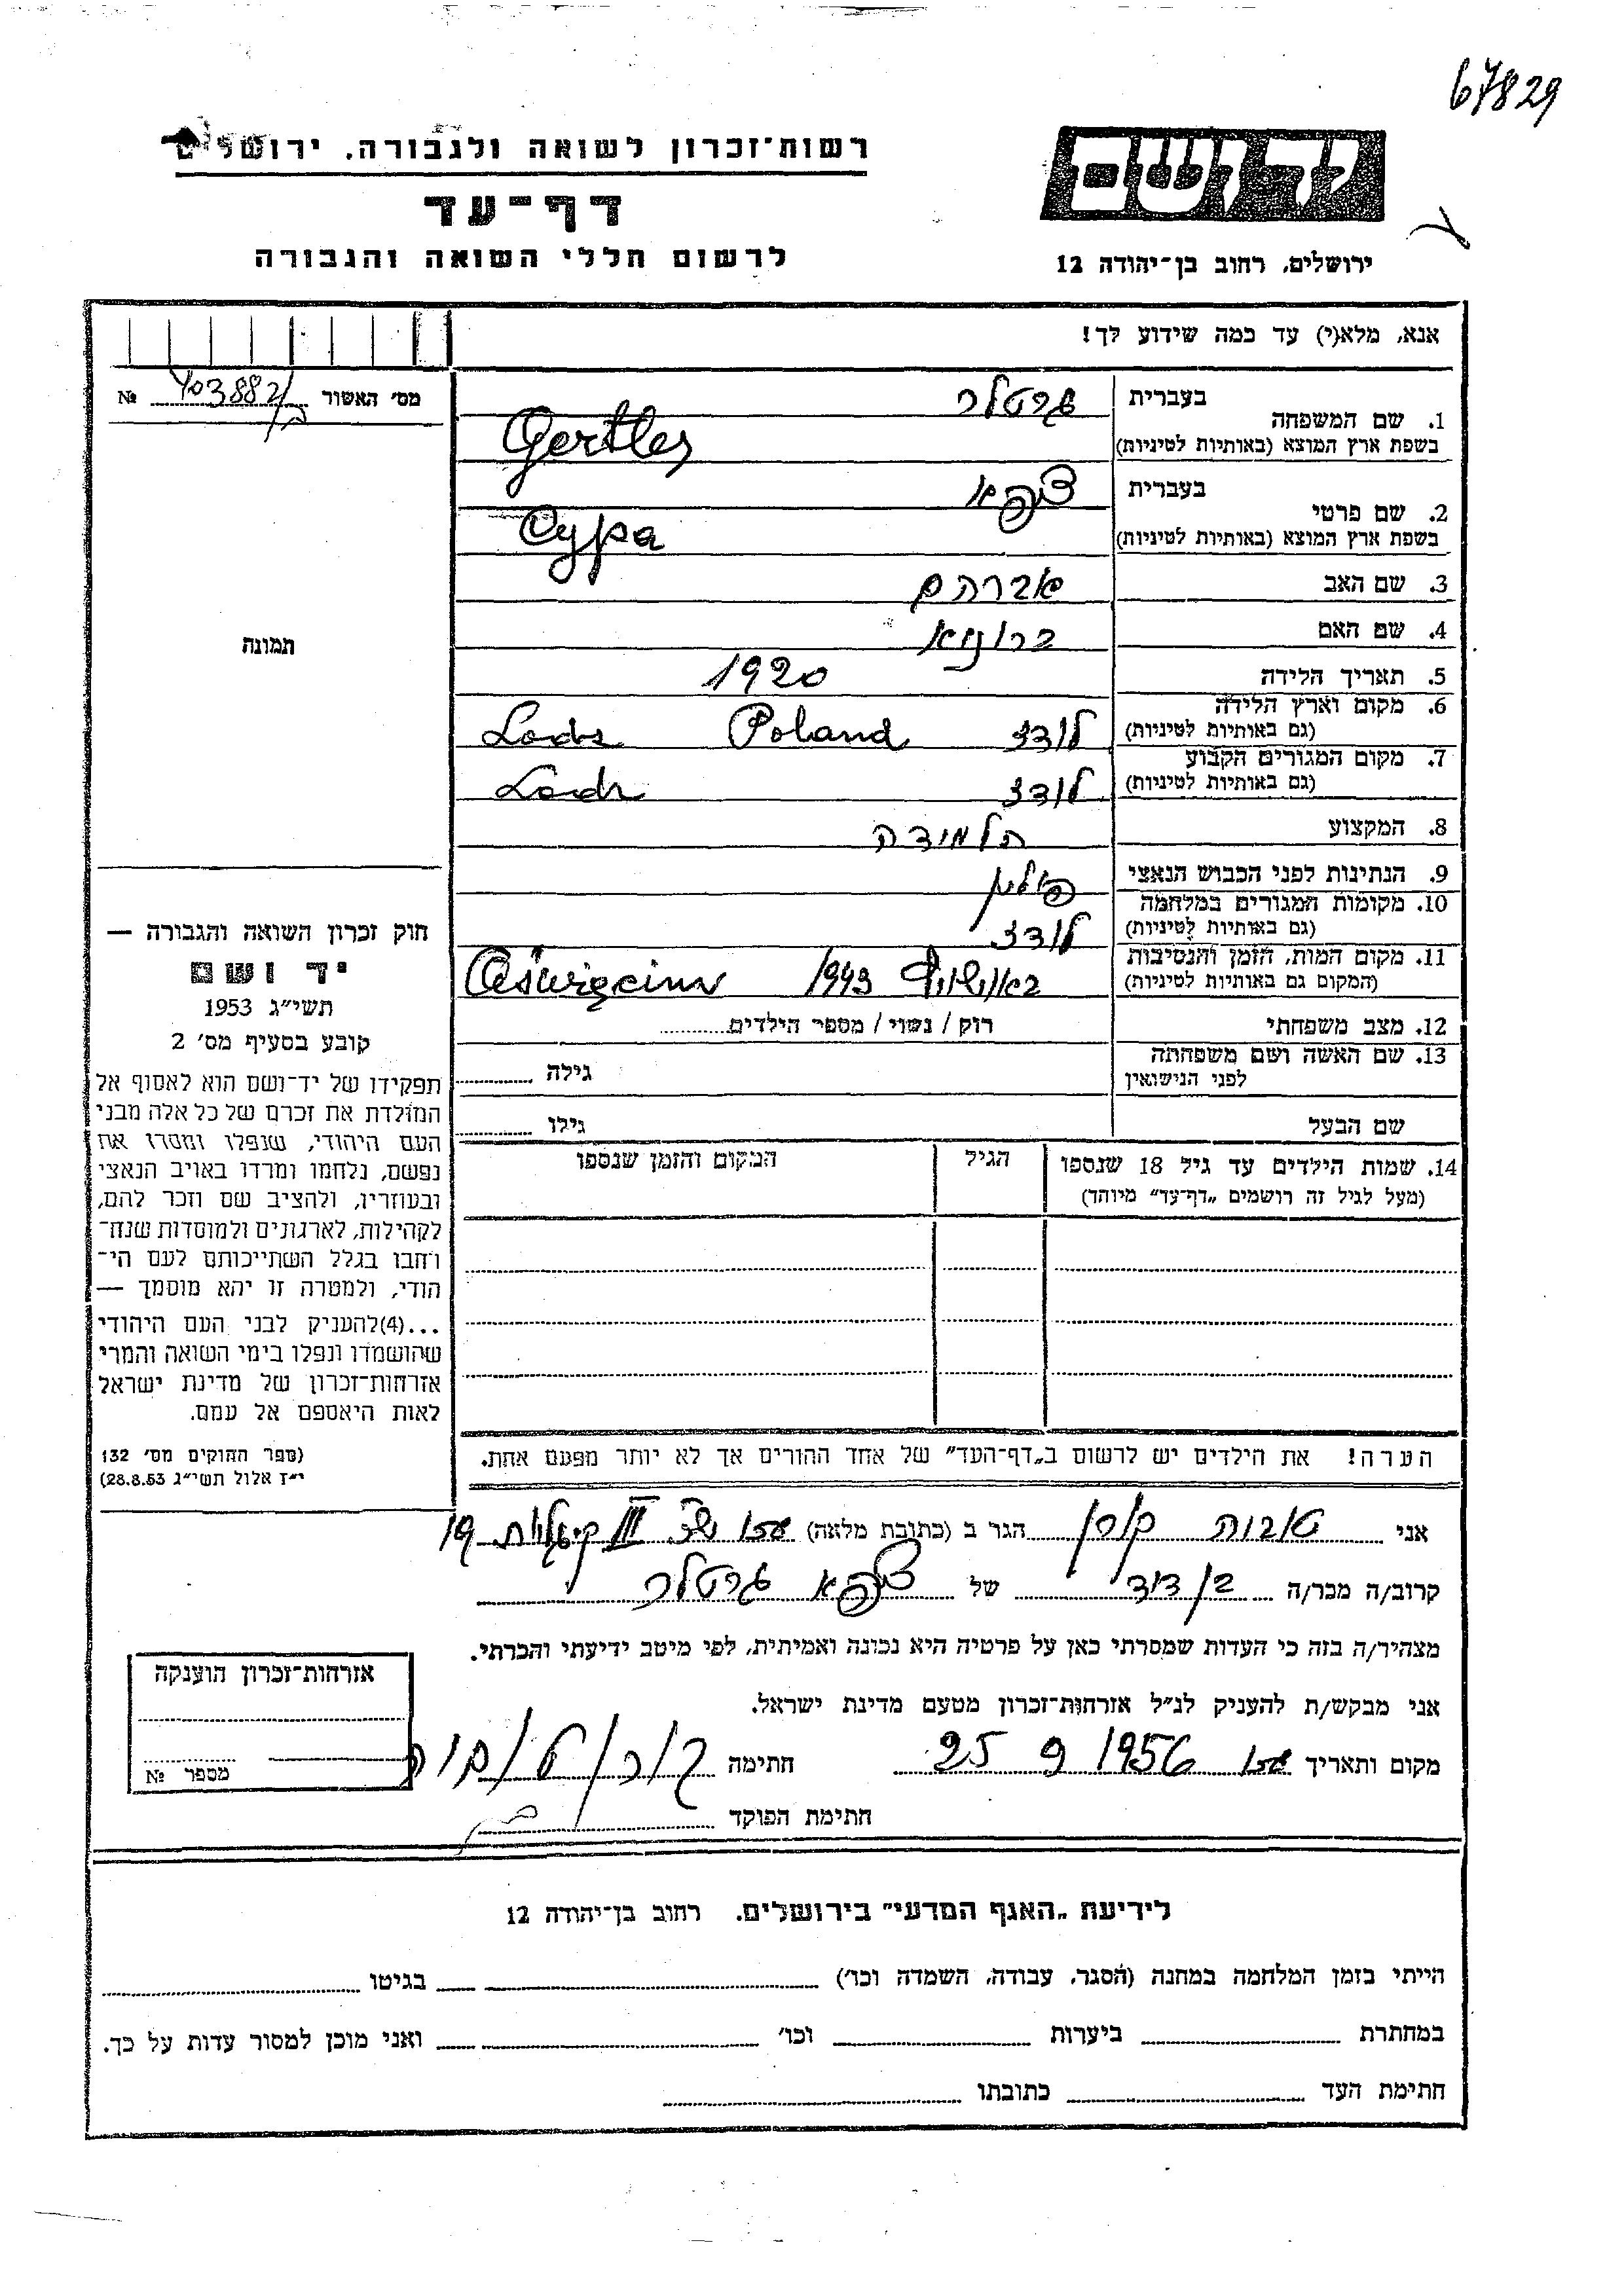 67829
רשות־זכרון לשואה ולגבורה, ירושלים
דף־עד
לרשום חללי השואה והגבורה
יד ושם
ירושלים, רחוב בן־יהודה 12
אנא, מלא(י) עד כמה שידוע לך!
מס׳ האשור № 403882/
1. שם המשפחה
בעברית גרטלר
בשפת ארץ המוצא (באותיות לטיניות) Gertler
2. שם פרטי
בעברית ציפא
בשפת ארץ המוצא (באותיות לטיניות) Cypa
3. שם האב אברהם
4. שם האם
5. תאריך הלידה 1920
6. מקום וארץ הלידה
(גם באותיות לטיניות) לודז Poland Lodz
7. מקום המגורים הקבוע
(גם באותיות לטיניות) לודז Lodz
8. המקצוע תלמידה
9. הנתינות לפני הכבוש הנאצי פולין
10. מקומות המגורים במלחמה
(גם באותיות לטיניות) לודז
11. מקום המות, הזמן והנסיבות
(המקום גם באותיות לטיניות) באושויץ 1943 Oświęcim
12. מצב משפחתי רווק / נשוי / מספר הילדים
13. שם האשה ושם משפחתה
לפני הנישואין גילה
שם הבעל גילו
14. שמות הילדים עד גיל 18 שנספו הגיל המקום והזמן שנספו
(מעל לגיל זה רושמים „דף־עד״ מיוחד)
הערה! את הילדים יש לרשום ב„דף־העד״ של אחד ההורים אך לא יותר מפעם אחת.
תמונה
חוק זכרון השואה והגבורה —
יד ושם
תשי״ג 1953
קובע בסעיף מס׳ 2
תפקידו של יד־ושם הוא לאסוף אל
המולדת את זכרם של כל אלה מבני
העם היהודי, שנפלו ומסרו את
נפשם, נלחמו ומרדו באויב הנאצי
ובעוזריו, ולהציב שם וזכר להם,
לקהילות, לארגונים ולמוסדות שנח־
רחבו בגלל השתייכותם לעם הי־
הודי, ולמטרה זו יהא מוסמך —
...(4)להעניק לבני העם היהודי
שהושמדו ונפלו בימי השואה והמרי
אזרחות־זכרון של מדינת ישראל
לאות היאספם אל עמם.
(ספר החוקים מס׳ 132
י״ז אלול תשי״ג 28.8.53)
אני טובה קורן הגר ב (כתובת מלאה) III 19
קרוב/ה מכר/ה בן דוד של ציפא גרטלר
מצהיר/ה בזה כי העדות שמסרתי כאן על פרטיה היא נכונה ואמיתית, לפי מיטב ידיעתי והכרתי.
אני מבקש/ת להעניק לנ״ל אזרחות־זכרון מטעם מדינת ישראל.
מקום ותאריך 25 9 1956 חתימה קורן טובה
חתימת הפוקד
אזרחות־זכרון הוענקה
מספר №
לידיעת „האגף המדעי״ בירושלים. רחוב בן־יהודה 12
הייתי בזמן המלחמה במחנה (הסגר, עבודה, השמדה וכו׳) בגיטו
במחתרת ביערות וכו׳ ואני מוכן למסור עדות על כך.
חתימת העד כתובתו